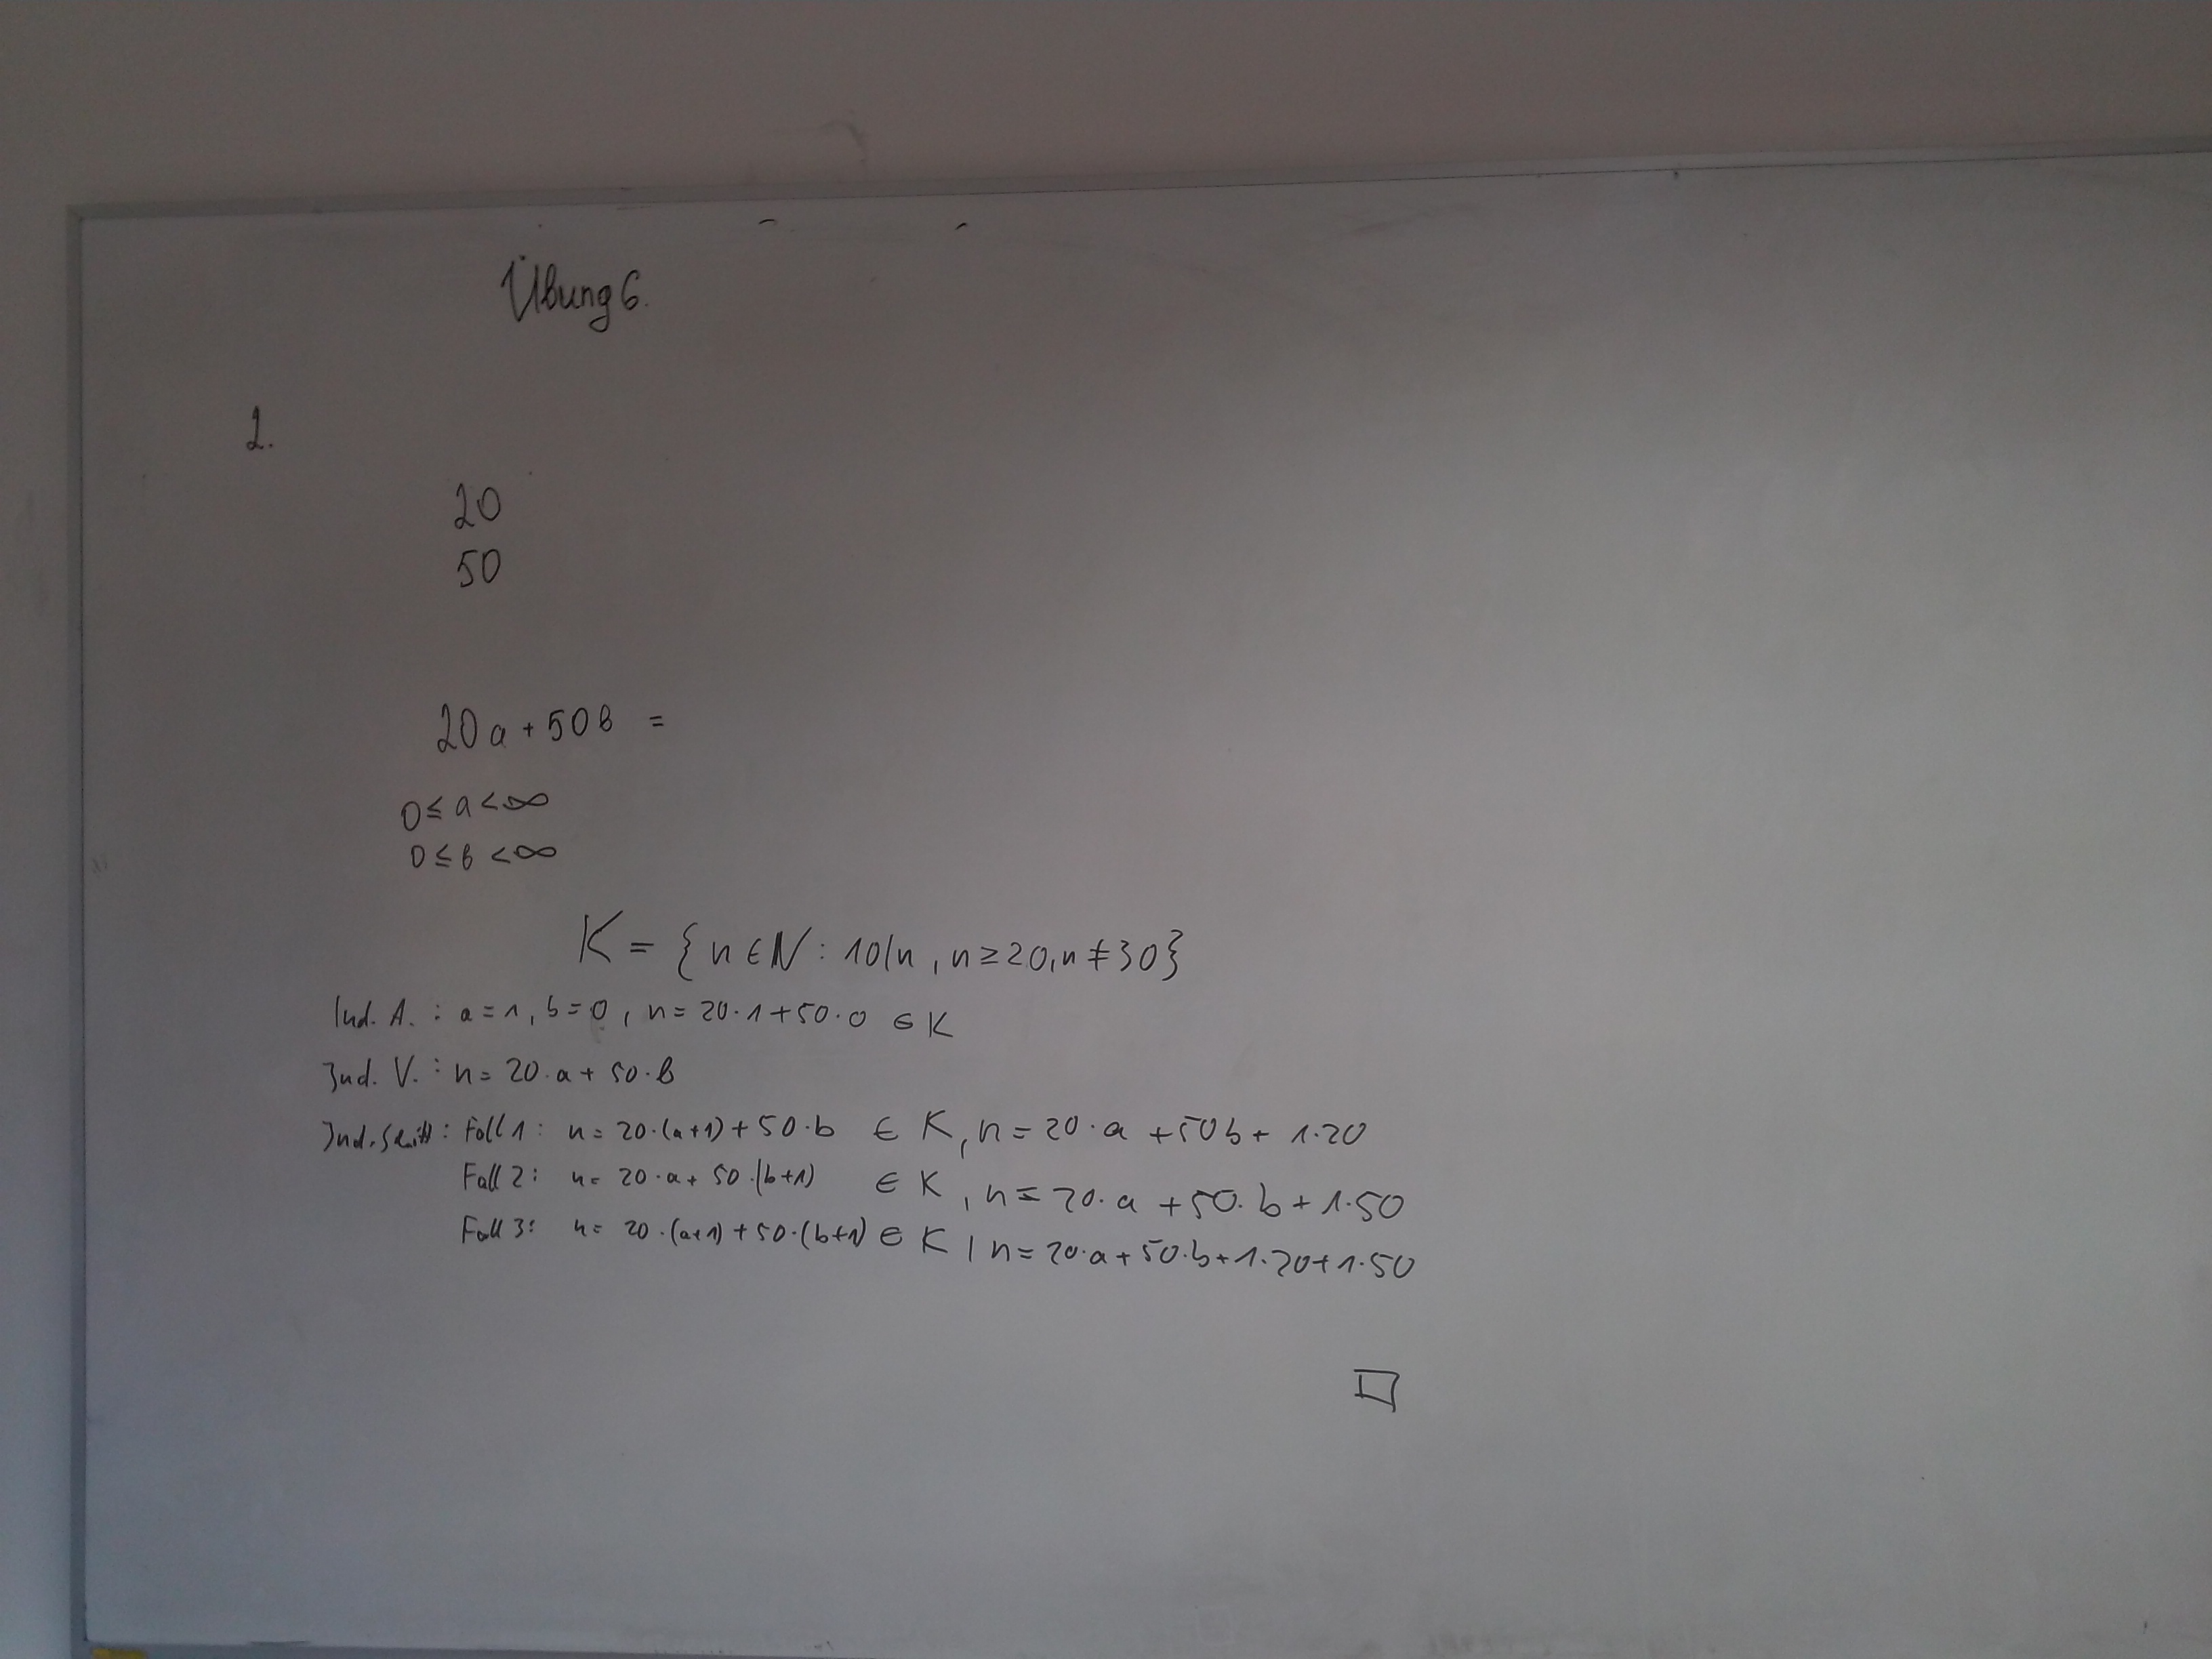 Übung 6.
1.
20
50
20a + 50b =
0 ≤ a < ∞
0 ≤ b < ∞
K = { n ∈ ℕ : 10|n , n ≥ 20, n ≠ 30 }
Ind. A. : a = 1, b = 0, n = 20·1 + 50·0 ∈ K
Ind. V. : n = 20·a + 50·b
Ind. : Fall 1 : n = 20·(a+1) + 50·b ∈ K, n = 20·a + 50b + 1·20
Fall 2 : n = 20·a + 50·(b+1) ∈ K, n = 20·a + 50·b + 1·50
Fall 3 : n = 20·(a+1) + 50·(b+1) ∈ K, n = 20·a + 50·b + 1·20 + 1·50
□